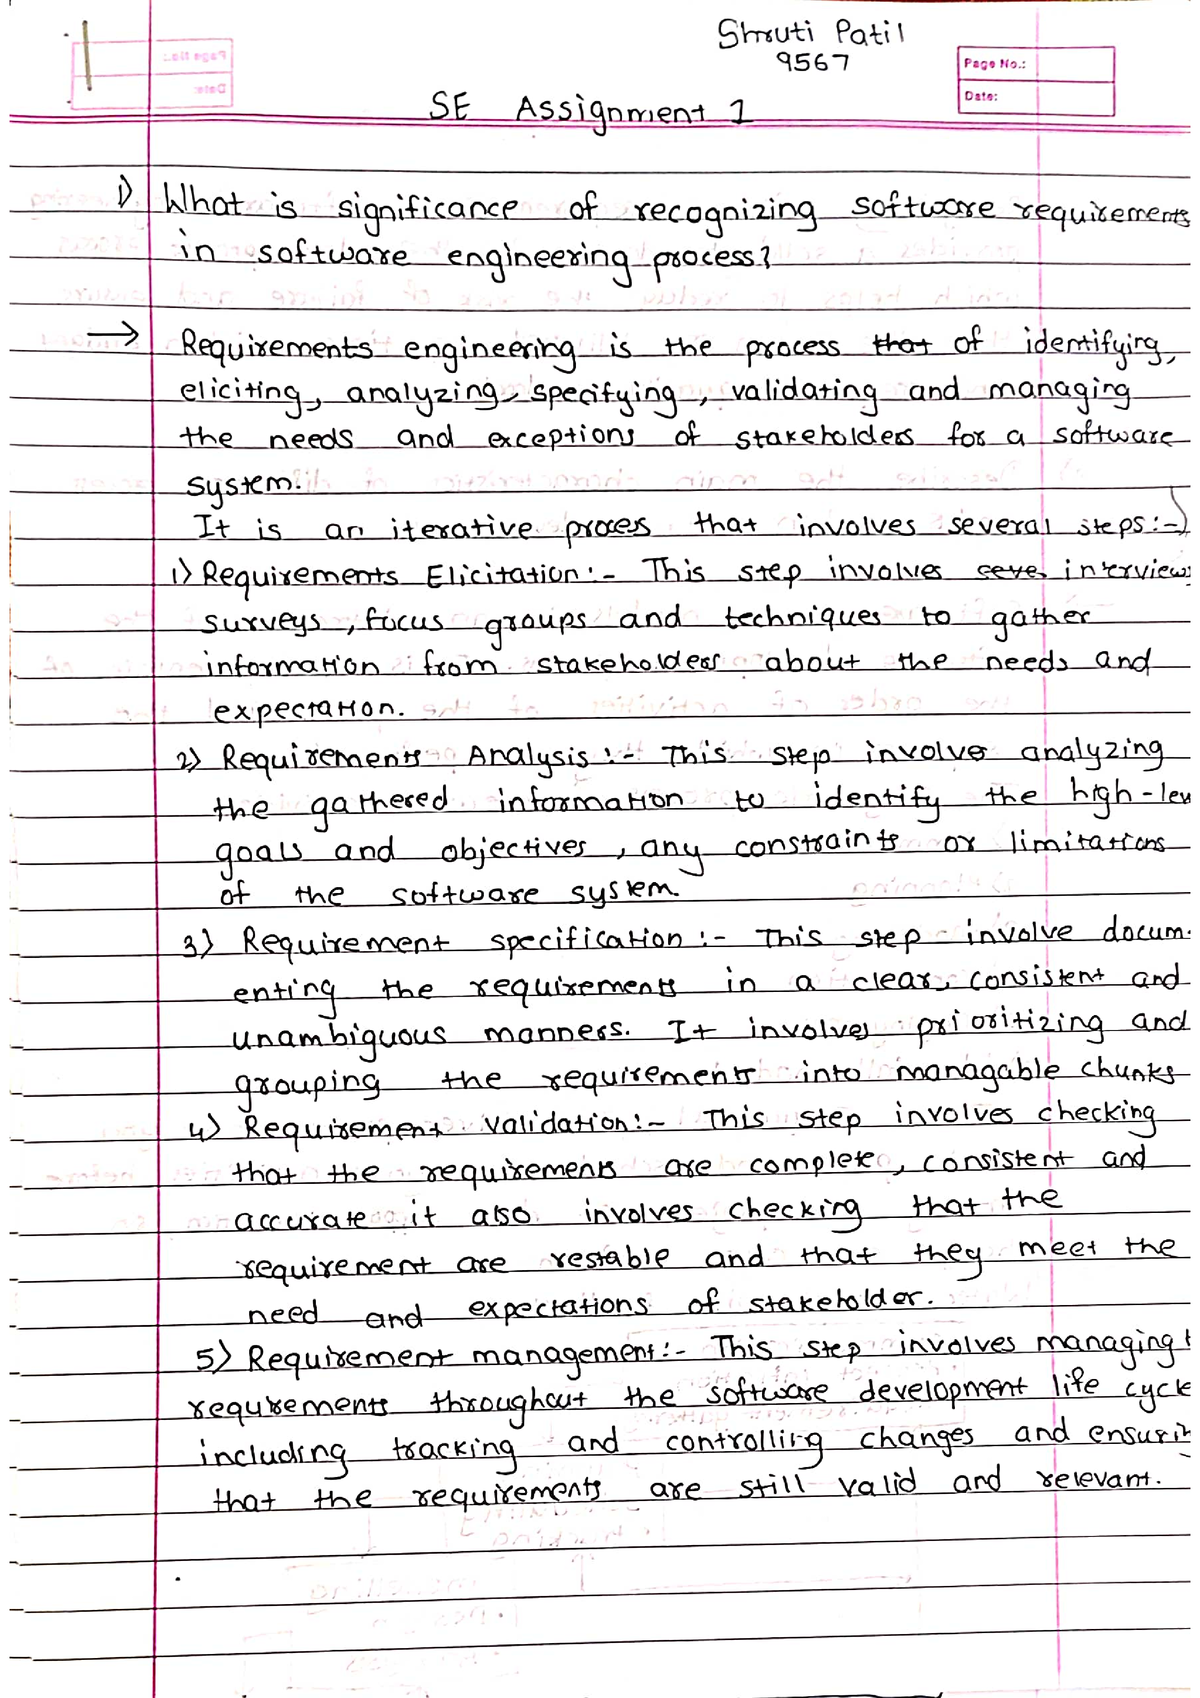 Shruti Patil
9567
Page No.:
Date:
SE Assignment 1
1) What is significance of recognizing software requirements
in software engineering process?
→ Requirements engineering is the process that of identifying,
eliciting, analyzing, specifying, validating and managing
the needs and exceptions of stakeholders for a software
system.
It is an iterative process that involves several steps:-
1) Requirements Elicitation:- This step involves seve interviews
surveys, focus groups and techniques to gather
information from stakeholders about the needs and
expectation.
2) Requirements Analysis:- This step involves analyzing
the gathered information to identify the high-lev
goals and objectives, any constraints or limitations
of the software system.
3) Requirement specification:- This step involve docum-
enting the requirements in a clear, consistent and
unambiguous manners. It involves prioritizing and
grouping the requirements into managable chunks
4) Requirement validation:- This step involves checking
that the requirements are complete, consistent and
accurate it also involves checking that the
requirement are restable and that they meet the
need and expectations of stakeholder.
5) Requirement management:- This step involves managing t
requrements throughout the software development life cycle
including tracking and controlling changes and ensurin
that the requirements are still valid and relevant.